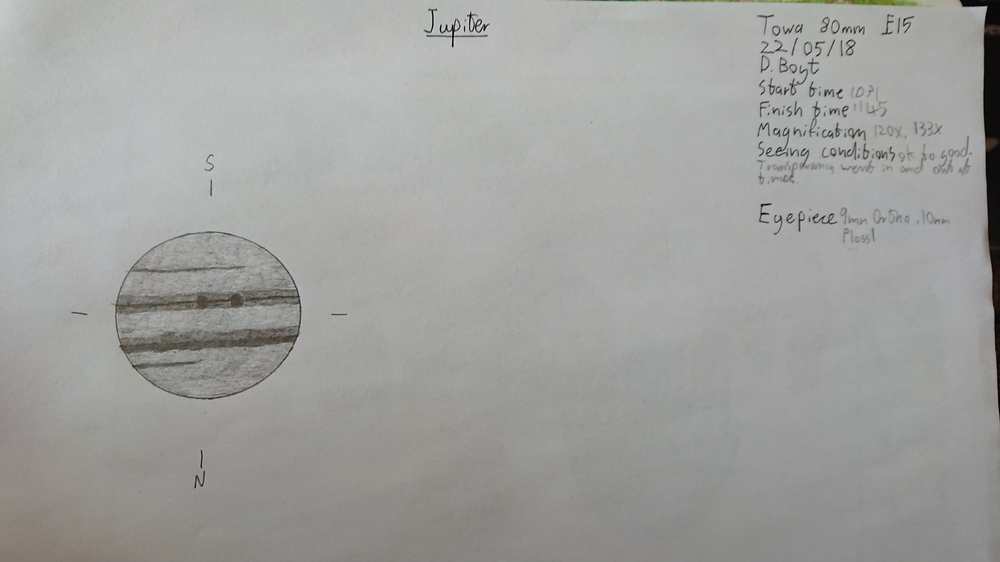 Jupiter
Towa 80mm E15
22/05/18
D. Boyt
Start time
Finish time 1145
Magnification 120x, 133x
Seeing conditions ok to good.
Transparency went in and out at
times.
Eyepiece 9mm Ortho, 10mm
Plossl
S
N